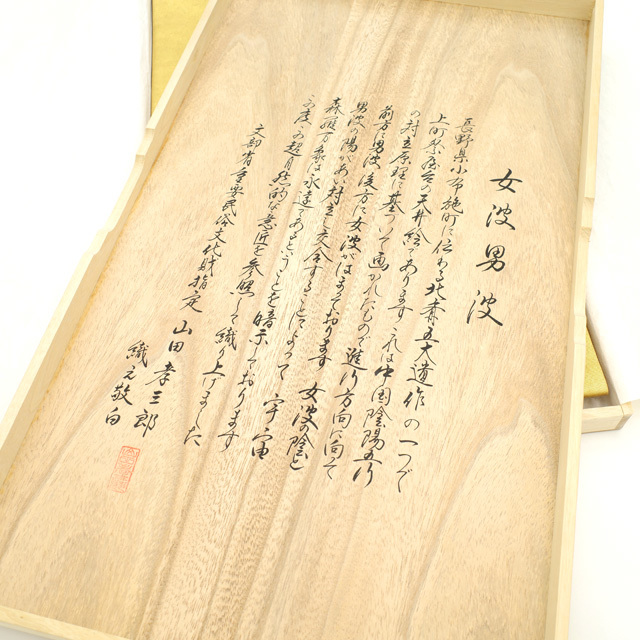 女波男波
長野県小布施町に伝わる北斎五大遺作の一つで
上町祭屋台の天井絵であります これは中国陰陽五行
の対立原理に基づいて画かれたもので進行方向に向って
前方に男波 後方に女波がはまっております 女波の陰と
男波の陽があい対立し交合することによって 宇宙
森羅万象は永遠であるということを暗示しております
この超自然的な意匠を参照して織り上げました
文部省重要民俗文化財指定 山田孝三郎
織元敬白